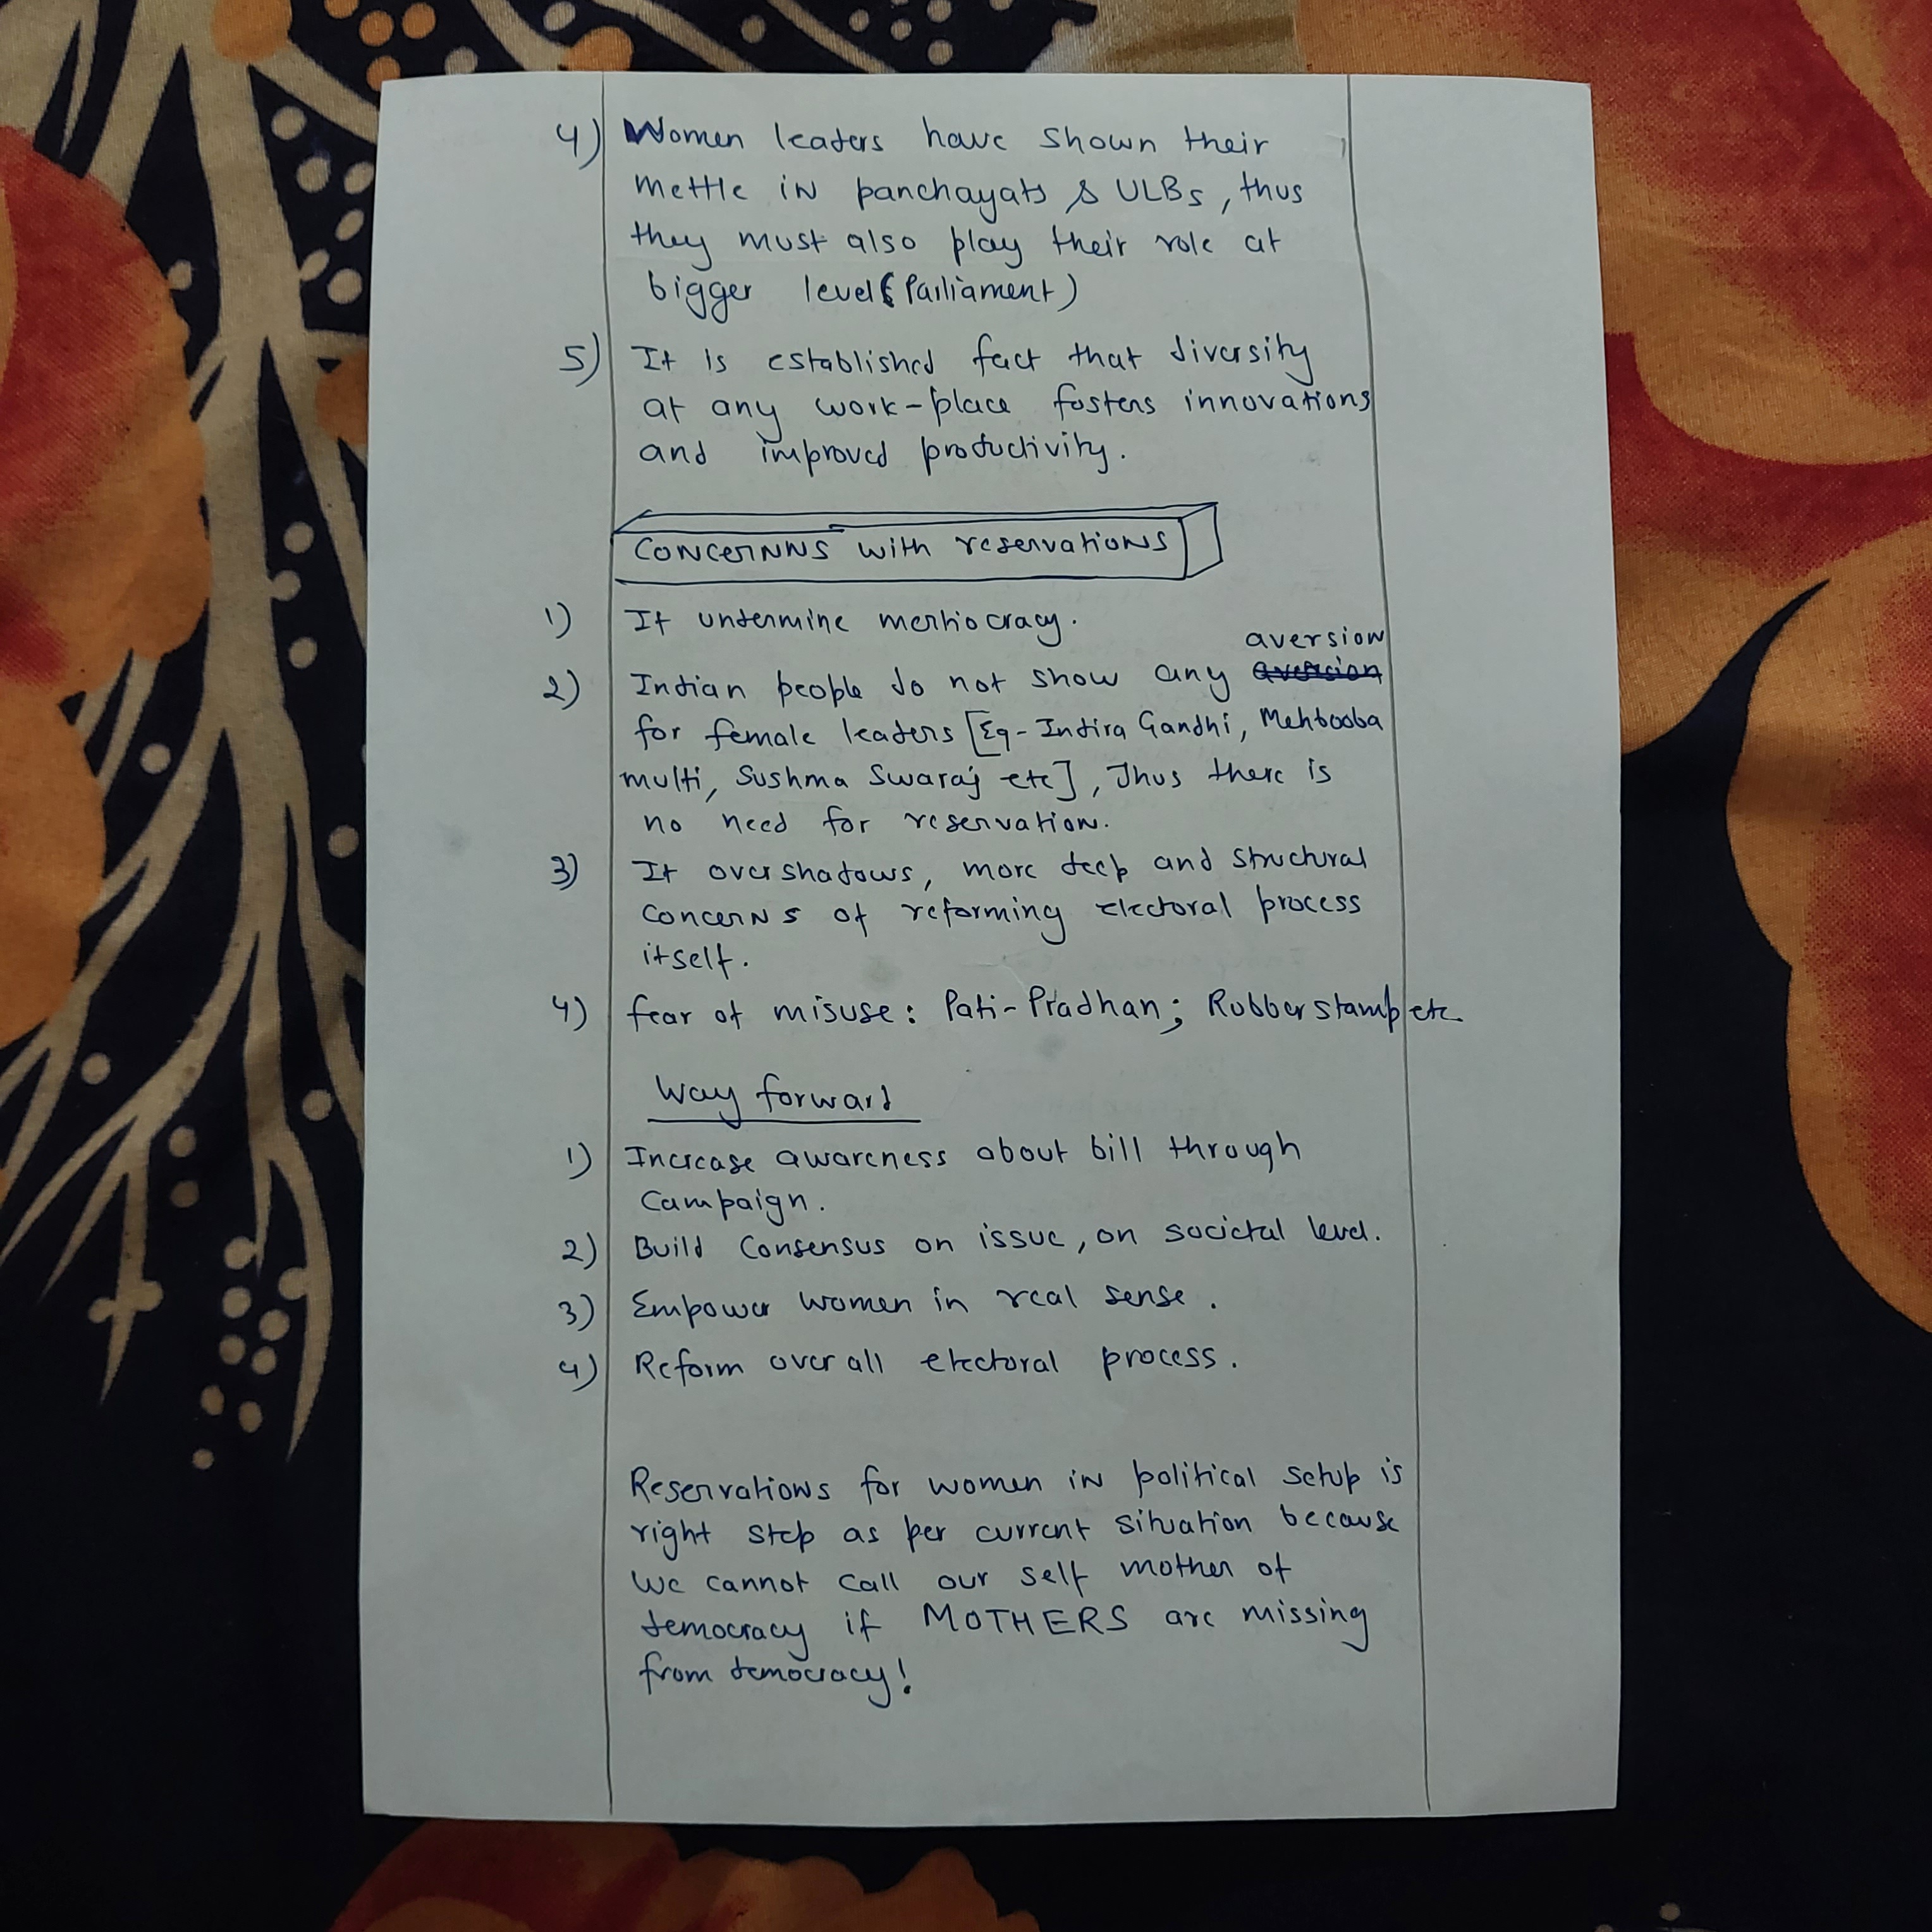 4) Women leaders have shown their
mettle in panchayats & ULBs, thus
they must also play their role at
bigger level (Parliament)
5) It is established fact that diversity
at any work-place fosters innovations
and improved productivity.
Concernns with reservations
1) It undermine meritiocracy.
aversion
2) Indian people do not show any aversion
for female leaders [Eg- Indira Gandhi, Mehbooba
multi, Sushma Swaraj etc], Thus there is
no need for reservation.
3) It overshadows, more deep and structural
concerns of reforming electoral process
itself.
4) fear of misuse: Pati-Pradhan; Rubber stamp etc.
Way forward
1) Increase awareness about bill through
campaign.
2) Build Consensus on issue, on societal level.
3) Empower women in real sense.
4) Reform over all electoral process.
Reservations for women in political setup is
right step as per current situation because
we cannot call our self mother of
democracy if MOTHERS are missing
from democracy!